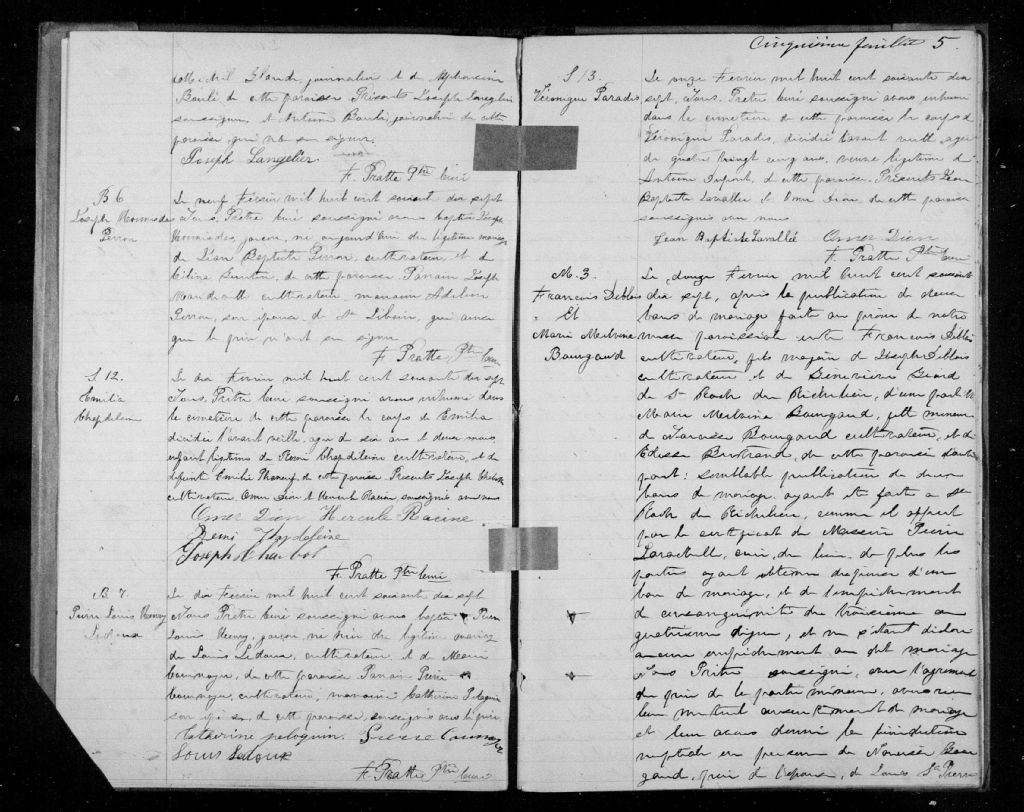 Michel Gland, journalier et de Alphonsine
Boulé de cette paroisse Présents Joseph Langelier
soussigné, et Antoine Boulé, journalier de cette
paroisse qui n'a su signer.
Joseph Langelier
F. Pratte Ptre Curé
B 6
Joseph Hormisdas
Perron
Le neuf Février mil huit cent soixante dix sept
Nous Prêtre Curé soussigné avons baptisé Joseph
Hormisdas, garçon, né aujourd'hui du légitime mariage
de Jean Baptiste Perron, cultivateur, et de
de cette paroisse Parrain Joseph
cultivateur, marraine Adeline
Perron, son épouse de St Liboire, qui ainsi
que le père n'ont su signer
F. Pratte Ptre Curé
S 12.
Emilia
Chapdeleine
Le dix Février mil huit cent soixante dix sept
Nous Prêtre Curé soussigné avons inhumé dans
le cimetière de cette paroisse le corps de Emilia
décédée l'avant veille, agée de six ans et deux mois,
enfant légitime de Remi Chapdeleine cultivateur, et de
défunte Emilie de cette paroisse. Présents Joseph Chabot
cultivateur Omer Dion et Hercule Racine soussignés avec nous
Omer Dion Hercule Racine
Remi Chapdeleine
Joseph Chabot
F. Pratte Ptre Curé
B. 7.
Pierre Louis Henry
Ledoux
Le dix Février mil huit cent soixante dix sept
Nous Prêtre Curé soussigné avons baptisé Pierre
Louis Henry, garçon, né hier du légitime mariage
de Louis Ledoux, cultivateur et de Marie
Cournoyer, de cette paroisse Parrain Pierre
Cournoyer, cultivateur, marraine Catherine Peloquin
son épouse, de cette paroisse, soussignés avec le père
Catherine peloquin. Pierre Cournoyer
Louis Ledoux
F. Pratte Ptre Curé
Cinquième feuillet 5.
S 13.
Véronique Paradis
Le onze Février mil huit cent soixante dix
sept, Nous Prêtre Curé soussigné avons inhumé
dans le cimetière de cette paroisse le corps de
Véronique Paradis, décédée l'avant veille, agée
de quatre vingt cinq ans, veuve légitime de
Antoine Dupont, de cette paroisse. Présents Jean
Baptiste Lavallée et Omer Dion de cette paroisse
soussignés avec nous
Jean Baptiste Lavallée Omer Dion
F. Pratte Ptre Curé
M. 3.
François Deblois
Et
Marie
Baurgaud
Le douze Février mil huit cent soixante
dix sept, après la publication de deux
bans de mariage faite au prône de notre
messe paroissiale entre François Deblois
cultivateur, fils majeur de Joseph Deblois
cultivateur et de Geneviève
de St Roch de Richelieu, d'une part, et
Marie Baurgaud, fille mineure
de Baurgaud cultivateur, et de
Bertrand, de cette paroisse d'autre
part: semblable publication de deux
bans de mariage ayant été faite à St
Roch de Richelieu, comme il appert
par le certificat de Messire Pierre
curé du lieu, de plus les
parties ayant obtenu dispense d'un
ban de mariage, et de l'empêchement
de consanguinité du troisième au
quatrième degré, et ne s'étant déclaré
aucun empêchement au dit mariage
Nous Prêtre soussigné, avec l'agrément
du père de la partie mineure, avons reçu
leur mutuel consentement de mariage
et leur avons donné la bénédiction
nuptiale en présence de
père de l'épouse, de Louis St Pierre